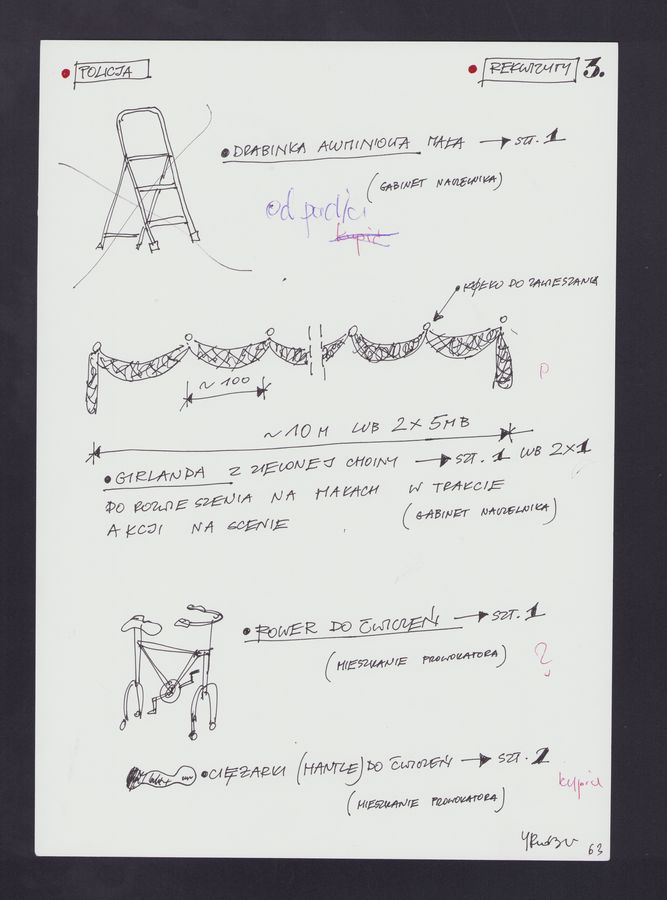 POLICJA
REKWIZYTY 3.
DRABINKA ALUMINIOWA MAŁA → SZT. 1
(GABINET NACZELNIKA)
od
kupić
KÓŁKO DO ZAWIESZANIA
~ 100
p
~ 10 M LUB 2 x 5 MB
GIRLANDA Z ZIELONEJ CHOINY → SZT. 1 LUB 2x1
DO ROZWIESZENIA NA HAKACH W TRAKCIE
AKCJI NA SCENIE
(GABINET NACZELNIKA)
ROWER DO ĆWICZEŃ → SZT. 1
(MIESZKANIE PROWOKATORA)
?
CIĘŻARKI (HANTLE) DO ĆWICZEŃ → SZT. 1
kupić
(MIESZKANIE PROWOKATORA)
63